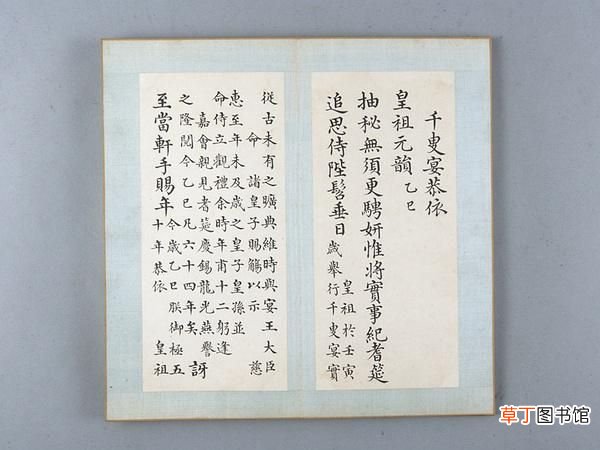 千叟宴恭依
皇祖元韻 乙巳
抽秘無須更騁妍惟將實事紀耆筵
追思侍陛髫垂日
皇祖於壬寅
歲舉行千叟宴實
從古未有之曠典維時與宴王大臣
命諸皇子賜觴以示 慈
惠至年未及歲之皇子皇孫並
命侍立觀禮余時年甫十二躬逢
嘉會親見耆筵慶錫龍光燕譽
之隆閱今乙巳凡六十四年矣
訝
至當軒手賜年
今歲乙巳朕御極五
十年恭依 皇祖
草丁图书馆